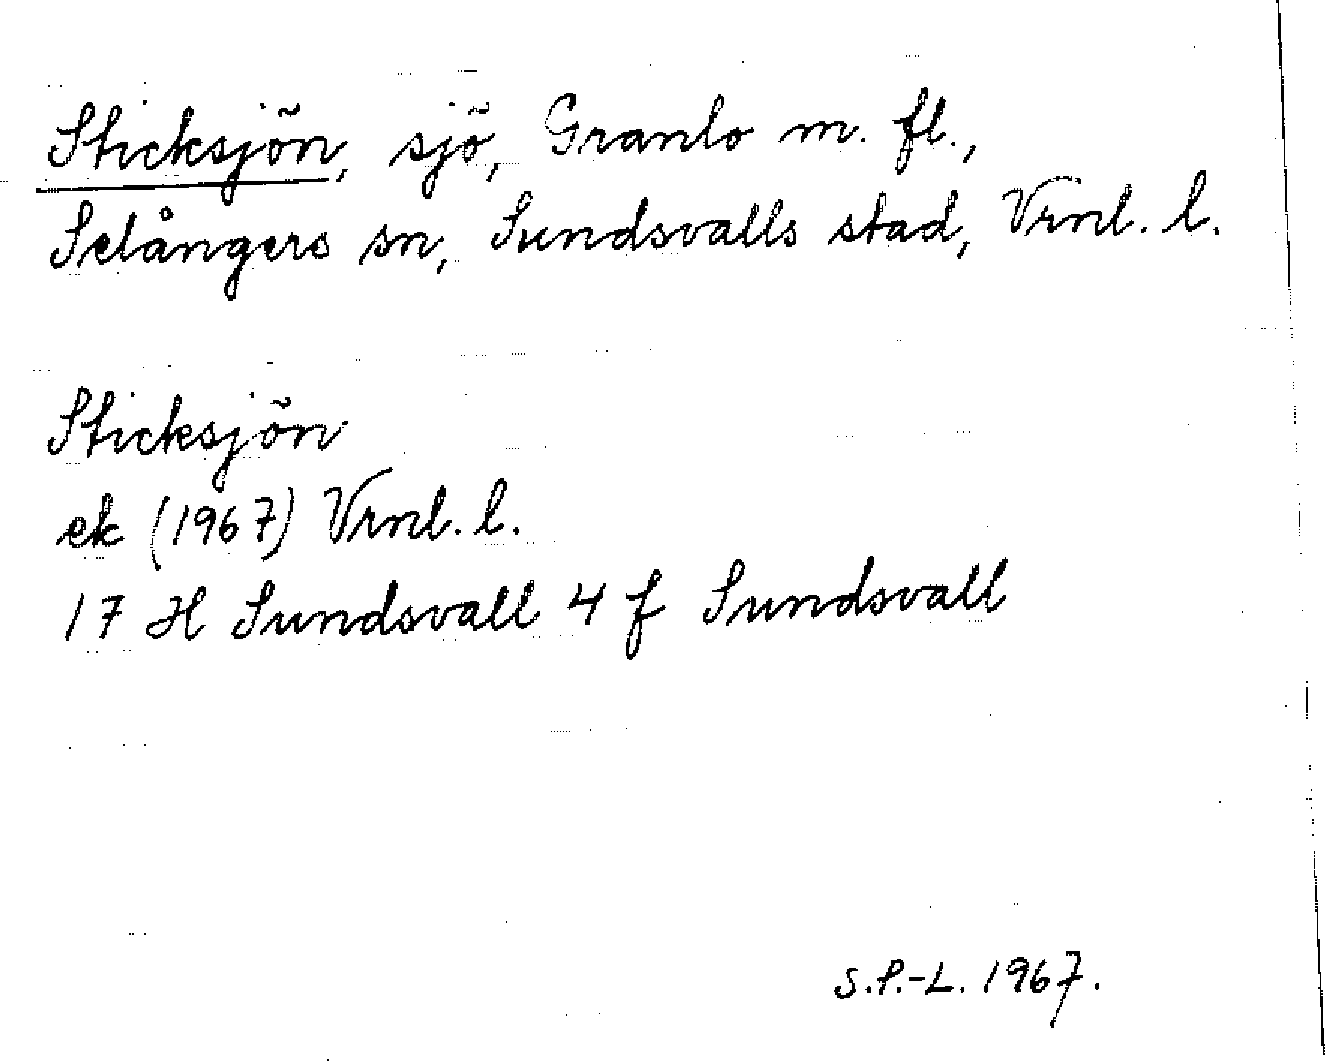 Sticksjön, sjö, Granlo m. fl.,
Selångers sn, Sundsvalls stad, Vrnl. l.
Sticksjön
ek (1967) Vrnl. l.
17 H Sundsvall 4 f Sundsvall
S.P.-L. 1967.